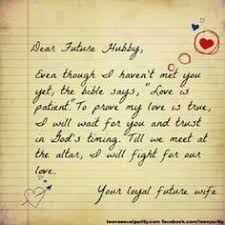 Dear Future Hubby,
Even though I haven't met you
yet, the bible says, "Love is
patient." To prove my love is true,
I will wait for you and trust
in God's timing. Till we meet at
the altar, I will fight for our
love.
Your loyal future wife